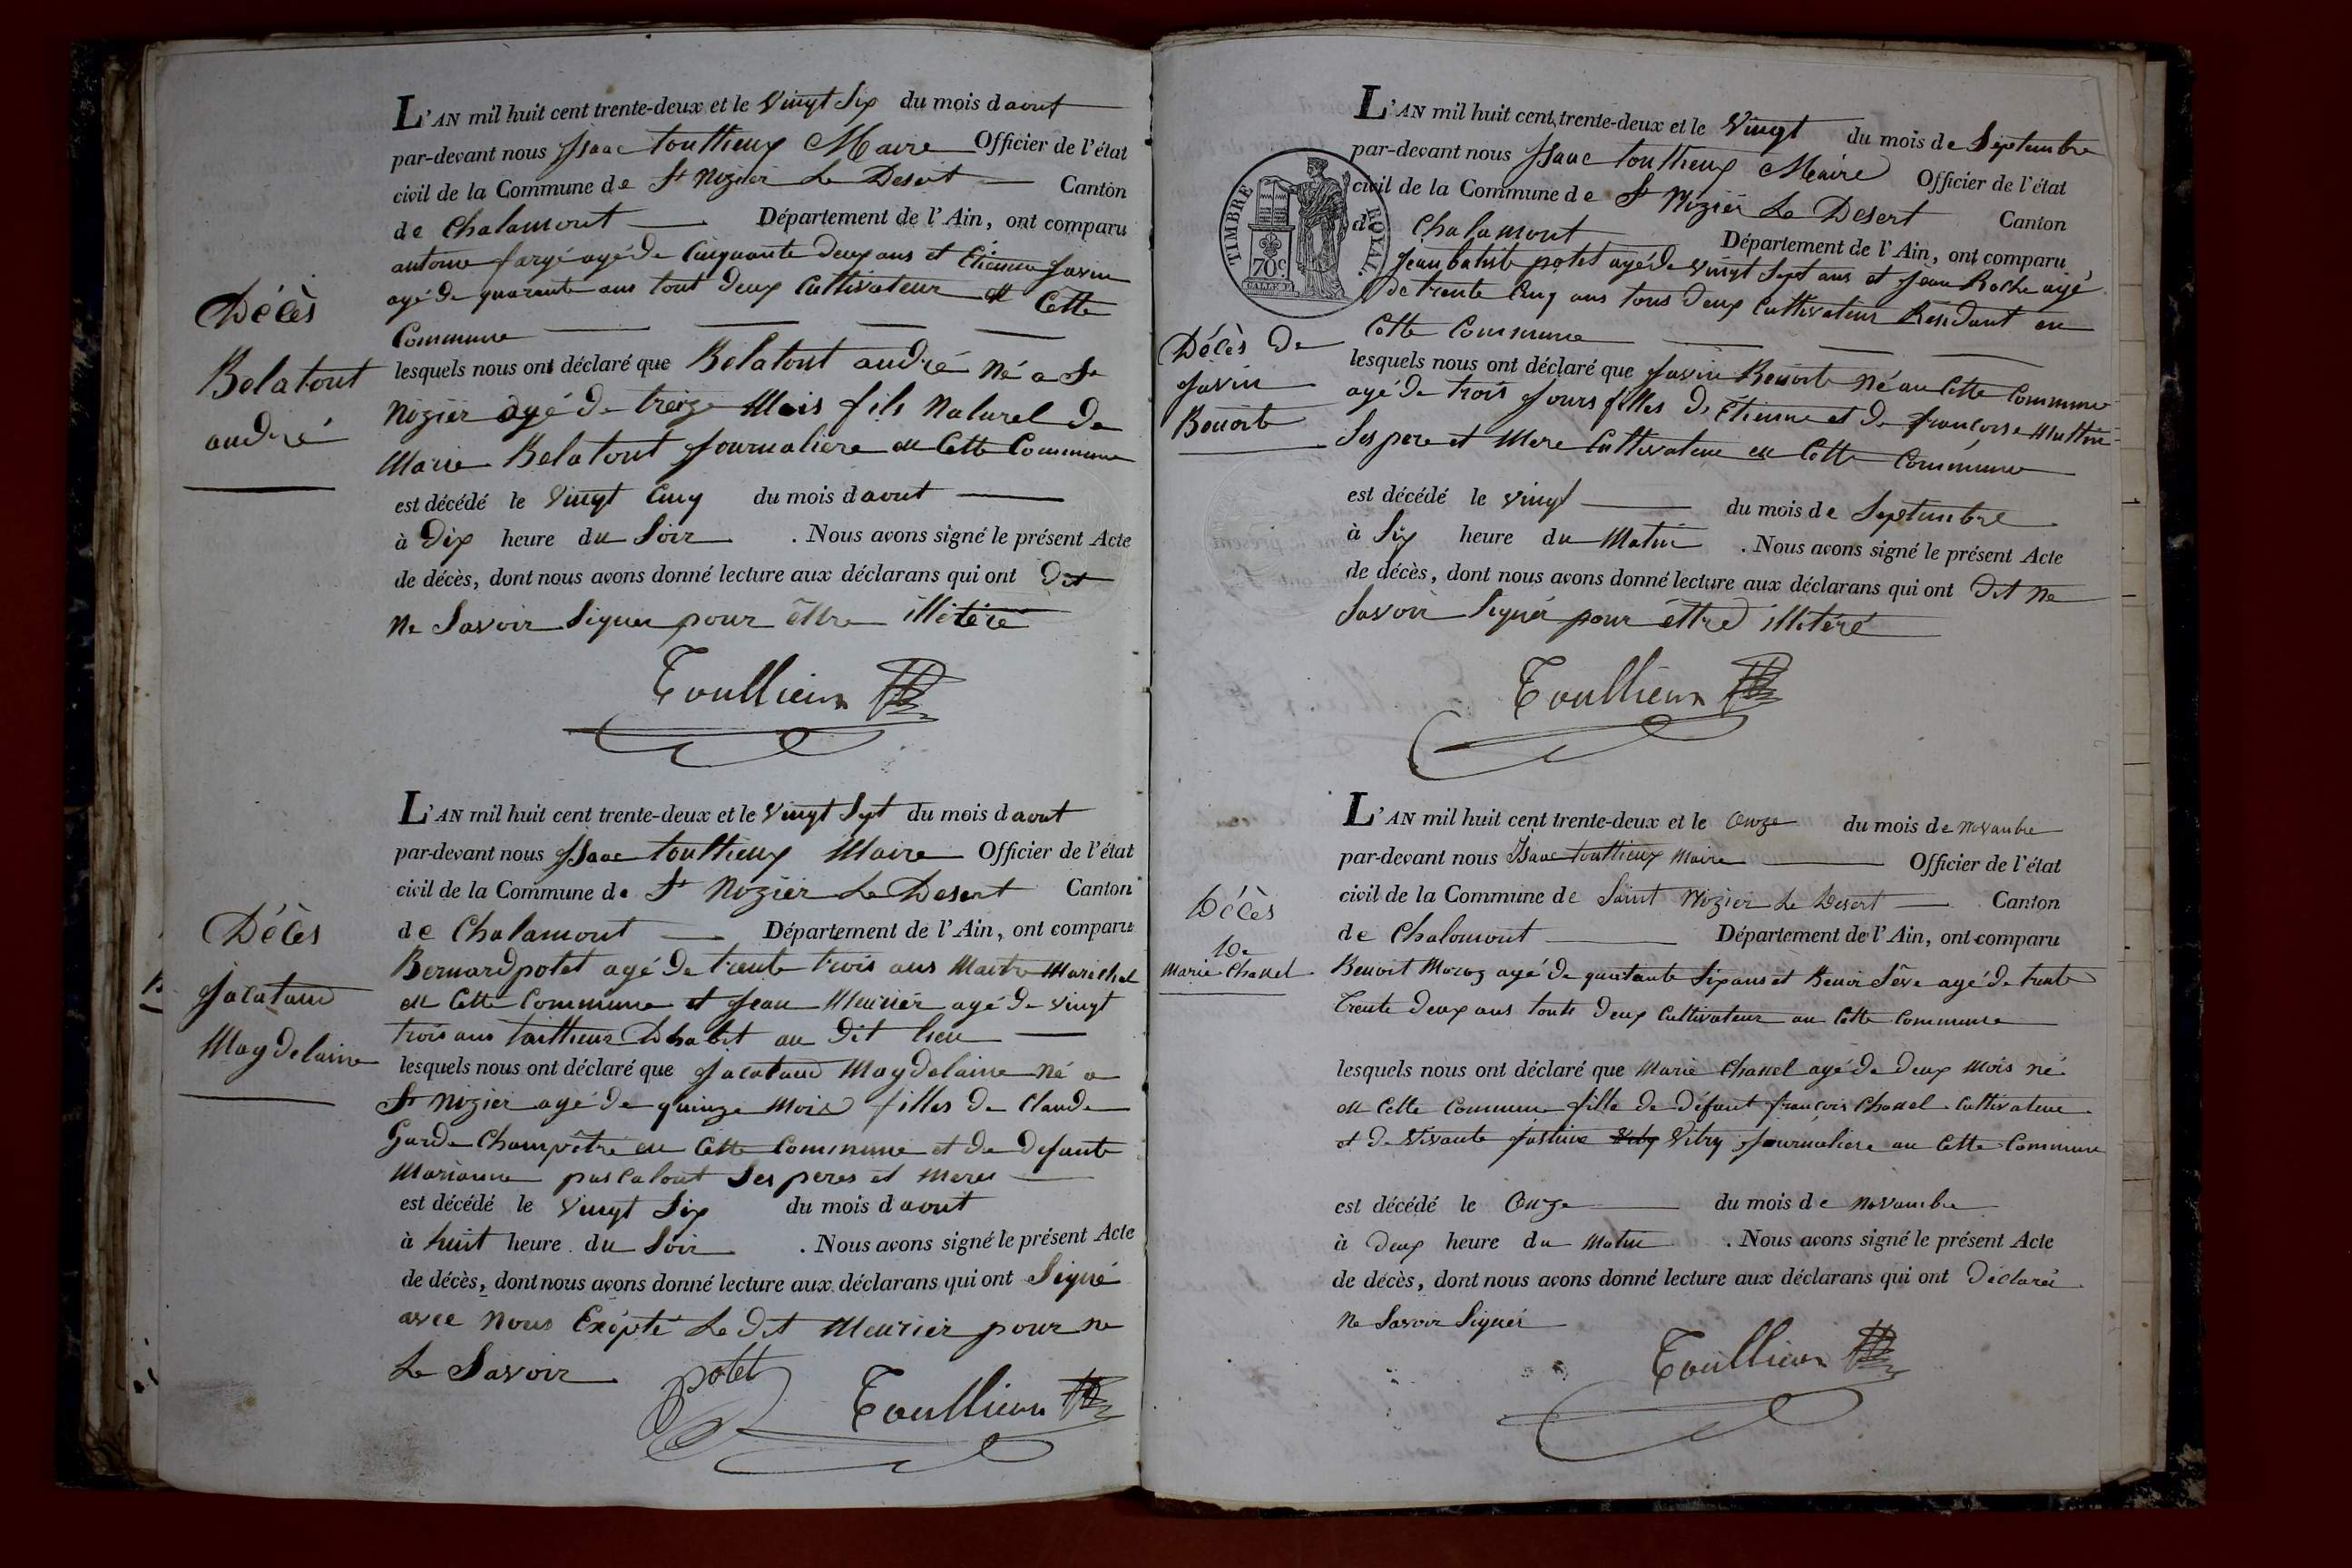 L'AN mil huit cent trente-deux et le Vingt Six du mois d aout
par-devant nous Isaac toullieux Maire Officier de l'état
civil de la Commune de St Nizier Le Desert Canton
de Chalamont Département de l'Ain, ont comparu
antoine fargé agé de Cinquante deux ans et Etienne Javin
agé de quarante ans tout deux Cultivateur en Cette
Commune
Décès
Belatout
andré
lesquels nous ont déclaré que Belatout andré né a St
Nizier agé de treize Mois fils Naturel de
Marie Belatout Journaliere en Cette Commune
est décédé le Vingt Cinq du mois d aout
à Dix heure du Soir . Nous avons signé le présent Acte
de décès, dont nous avons donné lecture aux déclarans qui ont Dit
Ne Savoir Signer pour êttre illitéré
Toullieux
L'AN mil huit cent trente-deux et le Vingt Sept du mois d aout
par-devant nous Isaac toullieux Maire Officier de l'état
civil de la Commune de St Nizier Le Desert Canton
de Chalamont Département de l'Ain, ont comparu
Bernard potet agé de trente trois ans Maitre Marichal
en Cette Commune et Jean Meurier agé de vingt
trois ans taillieur Dhabit au Dit lieu
Décès
Jacataud
Magdelaine
lesquels nous ont déclaré que Jacataud Magdelaine né a
St Nizier agé de quinze Mois filles de Claude
Garde Champêtre en Cette Commune et de Defunte
Marianne pascalout Ses peres et Meres
est décédé le Vingt Six du mois d aout
à huit heure du Soir . Nous avons signé le présent Acte
de décès, dont nous avons donné lecture aux déclarans qui ont Signé
avec Nous Exépté Le Dit Meurier pour ne
Le Savoir
potet Toullieux
L'AN mil huit cent trente-deux et le Vingt du mois de Septembre
par-devant nous Isaac toullieux Maire Officier de l'état
civil de la Commune de St Nizier Le Desert Canton
de Chalamont Département de l'Ain, ont comparu
TIMBRE ROYAL
70c
Jean batiste potet agé de vingt Sept ans et Jean Roche agé
de trente Cinq ans tous deux Cultivateur Résidant en
Cette Commune
Décès de
Javin
Benoite
lesquels nous ont déclaré que Javin Benoite né au Cette Commune
agé de trois Jours filles de Étienne et de françoise
Ses pere et Mere Cultivateur en Cette Commune
est décédé le vingt du mois de Septembre
à Six heure du Matin . Nous avons signé le présent Acte
de décès, dont nous avons donné lecture aux déclarans qui ont Dit Ne
Savoir Signér pour êttre illitéré
Toullieux
L'AN mil huit cent trente-deux et le Onze du mois de Novambre
par-devant nous Isaac toullieux Maire Officier de l'état
civil de la Commune de Saint Nizier Le Desert Canton
de Chalomont Département de l'Ain, ont comparu
Décès
De
Marie Chanel
Benoit agé de quarante Six ans et Benoi Sêve agé de trente
Trente Deux ans touts Deux Cultivateur au Cette Commune
lesquels nous ont déclaré que Marie Chanel agé de Deux Mois né
en Cette Commune fille de Défunt françois Chanel Cultivateur
et de Vivante Justine Vitry Journaliere au Cette Commune
est décédé le Onze du mois de Novambre
à Deux heure du Matin . Nous avons signé le présent Acte
de décès, dont nous avons donné lecture aux déclarans qui ont Déclaré
Ne Savoir Signér
Toullieux